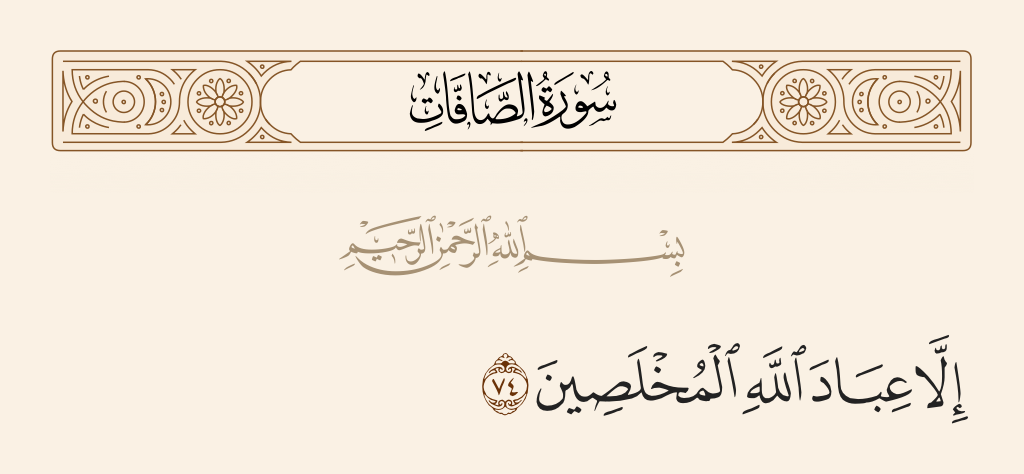 سُورَةُ الصَّافَّاتِ
بِسْمِ ٱللَّهِ ٱلرَّحْمَٰنِ ٱلرَّحِيمِ
إِلَّا عِبَادَ ٱللَّهِ ٱلْمُخْلَصِينَ ٧٤